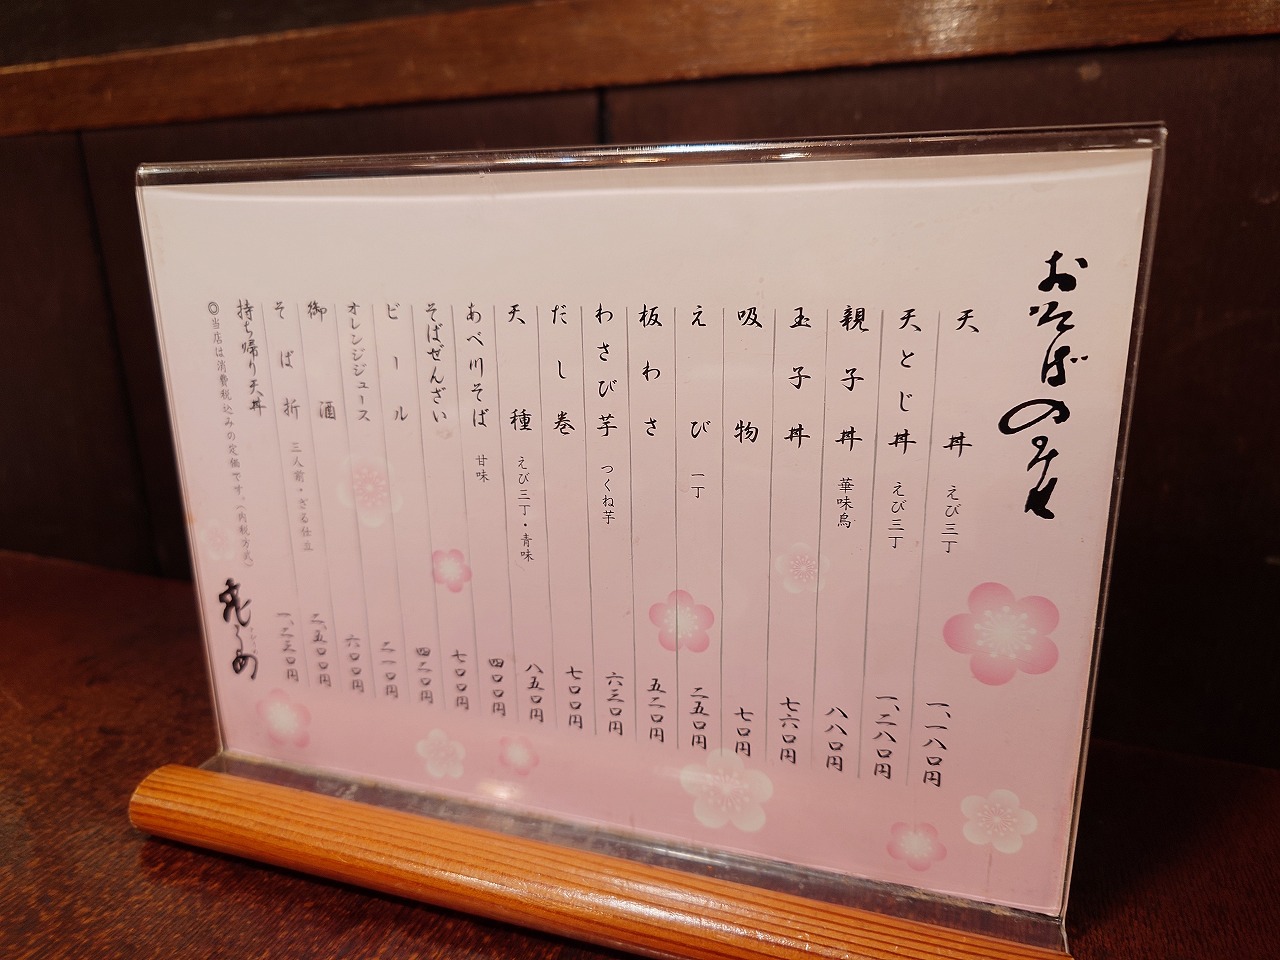 おそばのみせ
天丼 えび三丁 一、一八〇円
天とじ丼 えび三丁 一、二八〇円
親子丼 華味鳥 八八〇円
玉子丼 七六〇円
吸物 七〇円
えび 一丁 二五〇円
板わさ 五二〇円
わさび芋 つくね芋 六三〇円
だし巻 七〇〇円
天種 えび三丁・青味 八五〇円
あべ川そば 甘味 四〇〇円
そばぜんざい 七〇〇円
ビール 四二〇円
オレンジジュース 二一〇円
御酒 六〇〇円
そば折 三人前・ざる仕立 二、五〇〇円
持ち帰り天丼 一、二三〇円
◎当店は消費税込みの定価です。(内税方式)